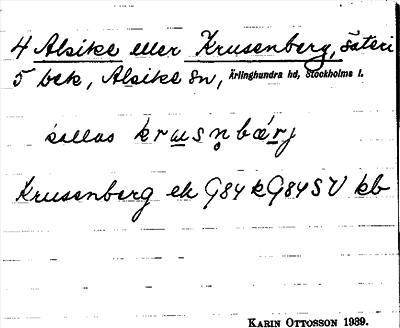 4 Alsike eller Krusenberg, säteri
5 bek, Alsike sn, Ärlinghundra hd, Stockholms l.
kallas krusn̥bærj
Krusenberg ek G84 k G84 SV kb
KARIN OTTOSSON 1939.